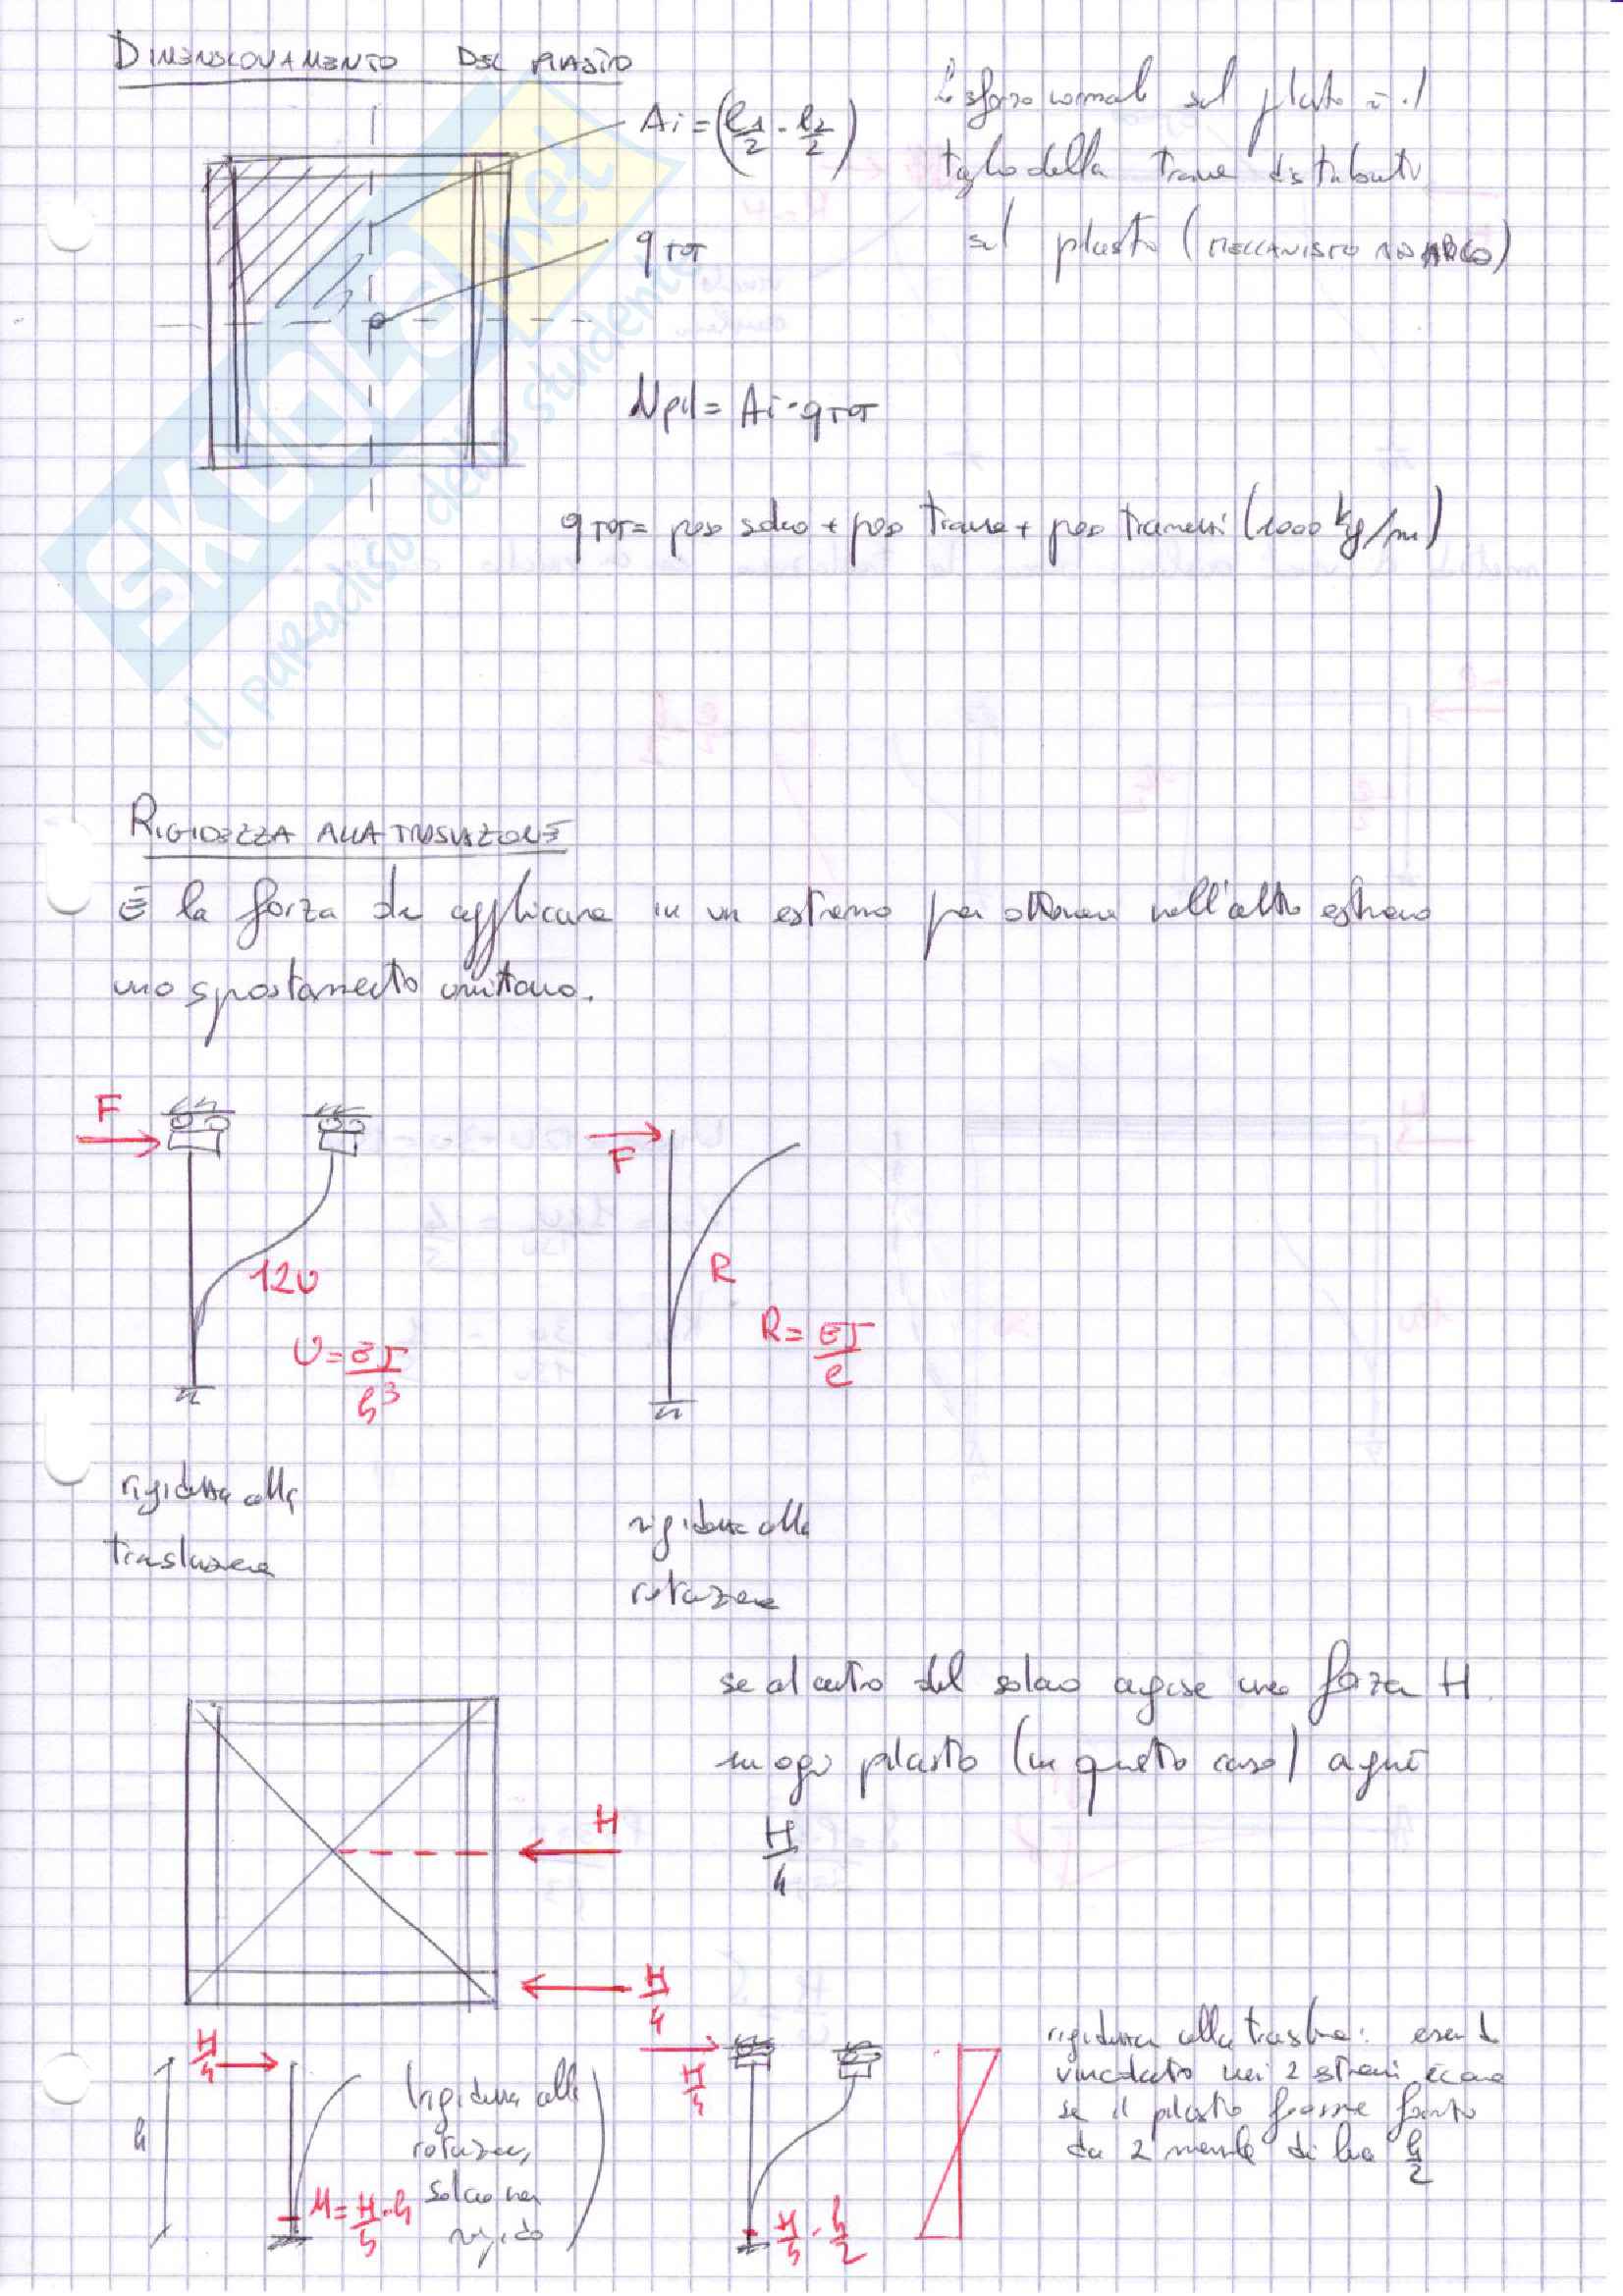 DIMENSIONAMENTO DEL PILASTRO
Ai = (l1/2 · l2/2)
L'sforzo normale sul pilastro è il
taglio della trave distribuito
sul pilastro (MECCANISMO AD ARCO)
q TOT
Npil = Ai · q TOT
q TOT = peso solaio + peso trave + peso tramezzi (1000 kg/m)
SKUOLA.net
il paradiso dello studente
RIGIDEZZA ALLA TRASLAZIONE
È la forza da applicare in un estremo per ottenere nell'altro estremo
uno spostamento unitario.
F
F
12U
R
U = EI/h³
R = EI/l
rigidezza alla
traslazione
rigidezza alla
rotazione
se al centro del solaio agisce una forza H
in ogni pilastro (in questo caso) agirà
H/4
H
H/4
H/4
h
M = H/4 · h
(rigidezza alla
rotazione,
solaio non
rigido)
H/4
H/4 · h/2
rigidezza alla traslaz: essendo
vincolato nei 2 estremi è come
se il pilastro fosse fatto
da 2 mensole di luce h/2